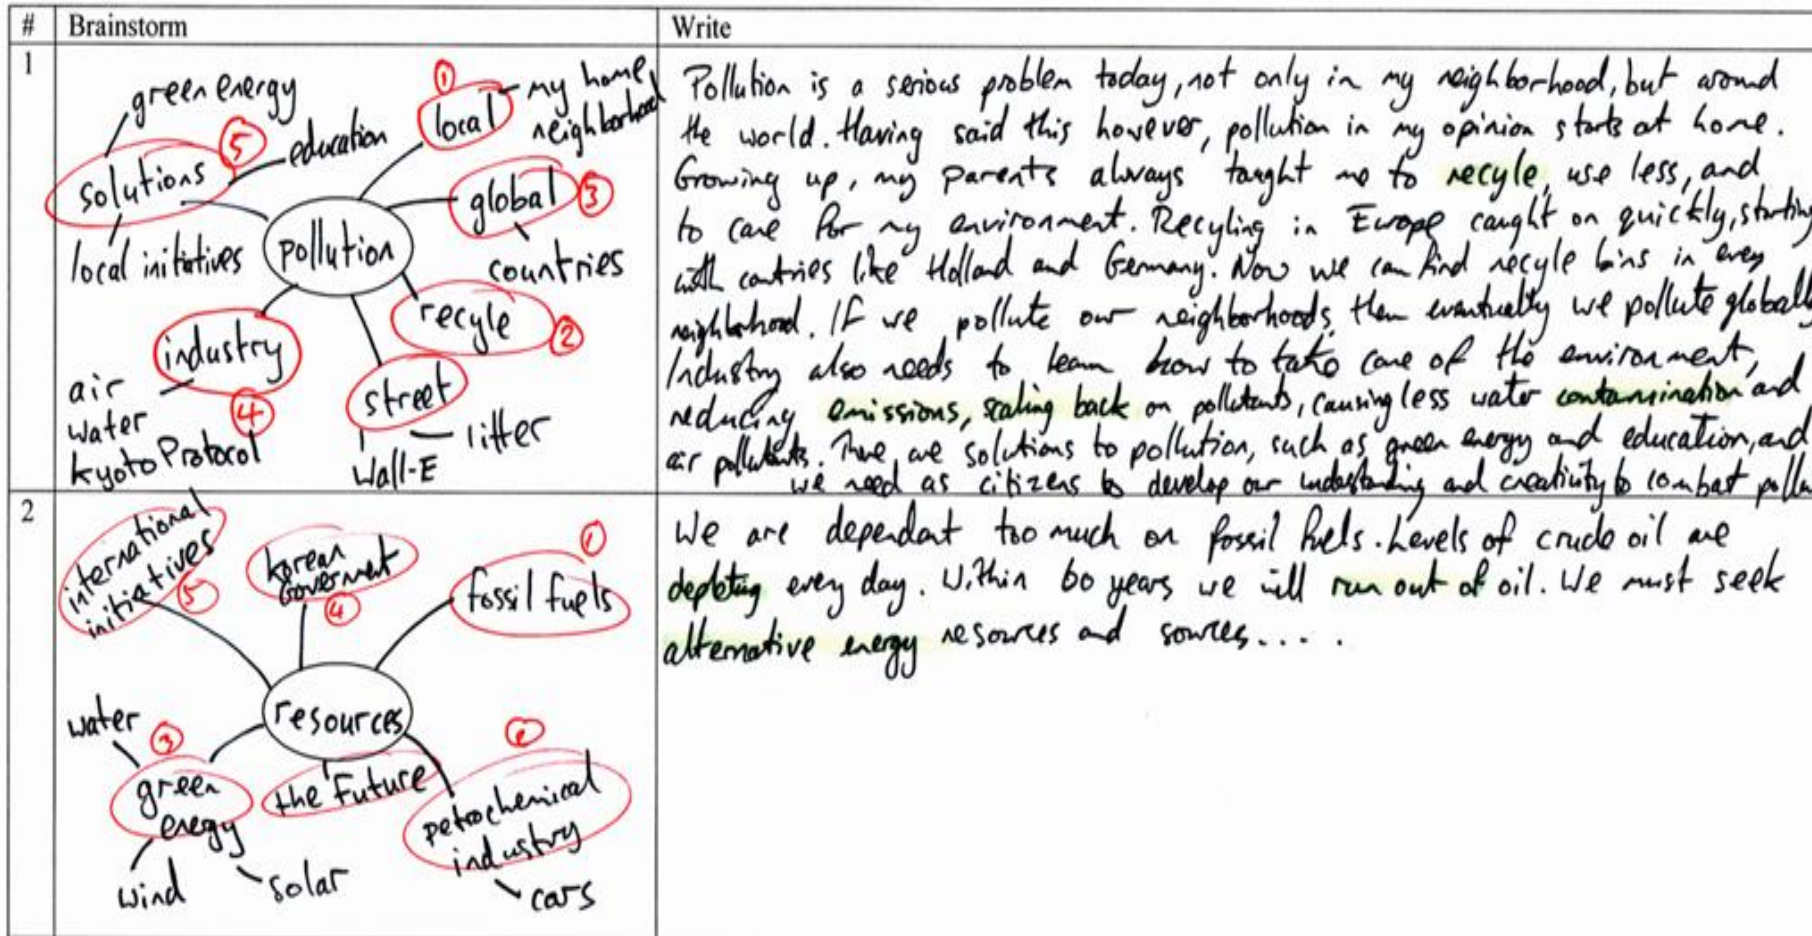 # Brainstorm Write
1
green energy
solutions
5
education
local initiatives
pollution
1
local
my home,
neighborhood
global
3
countries
recyle
2
industry
4
air
water
Kyoto Protocol
street
litter
Wall-E
Pollution is a serious problem today, not only in my neighborhood, but around
the world. Having said this however, pollution in my opinion starts at home.
Growing up, my parents always taught me to recyle, use less, and
to care for my environment. Recyling in Europe caught on quickly, starting
with contries like Holland and Germany. Now we can find recyle bins in every
neighborhood. If we pollute our neighborhoods, then eventually we pollute globally
Industry also needs to learn how to take care of the environment,
reducing emissions, scaling back on pollutants, causing less water contamination and
air pollutants. There are solutions to pollution, such as green energy and education, and
we need as citizens to develop our understanding and creativity to combat pollu
2
international
initiatives
5
Korean
Goverment
4
1
fossil fuels
resources
water
3
green
energy
wind
solar
the Future
2
petrochemical
industry
cars
We are dependant too much on fossil fuels. Levels of crude oil are
depleting every day. Within 60 years we will run out of oil. We must seek
alternative energy resources and sources....